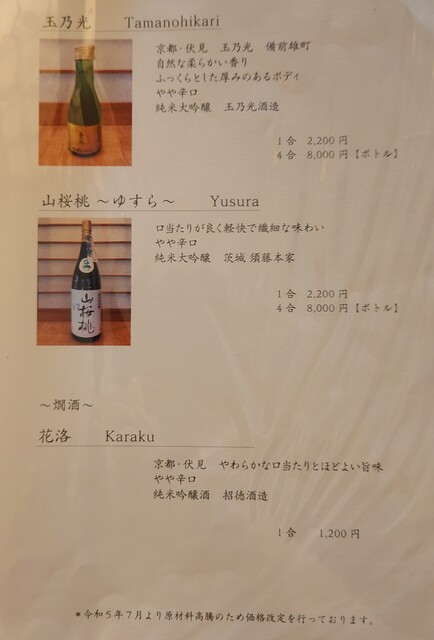 玉乃光 Tamanohikari
京都・伏見 玉乃光 備前雄町
自然な柔らかい香り
ふっくらとした厚みのあるボディ
やや辛口
純米大吟醸 玉乃光酒造
1合 2,200円
4合 8,000円【ボトル】
山桜桃 ～ゆすら～ Yusura
口当たりが良く軽快で繊細な味わい
やや辛口
純米大吟醸 茨城 須藤本家
1合 2,200円
4合 8,000円【ボトル】
山桜桃
～燗酒～
花洛 Karaku
京都・伏見 やわらかな口当たりとほどよい旨味
やや辛口
純米吟醸酒 招徳酒造
1合 1,200円
＊令和5年7月より原材料高騰のため価格改定を行っております。